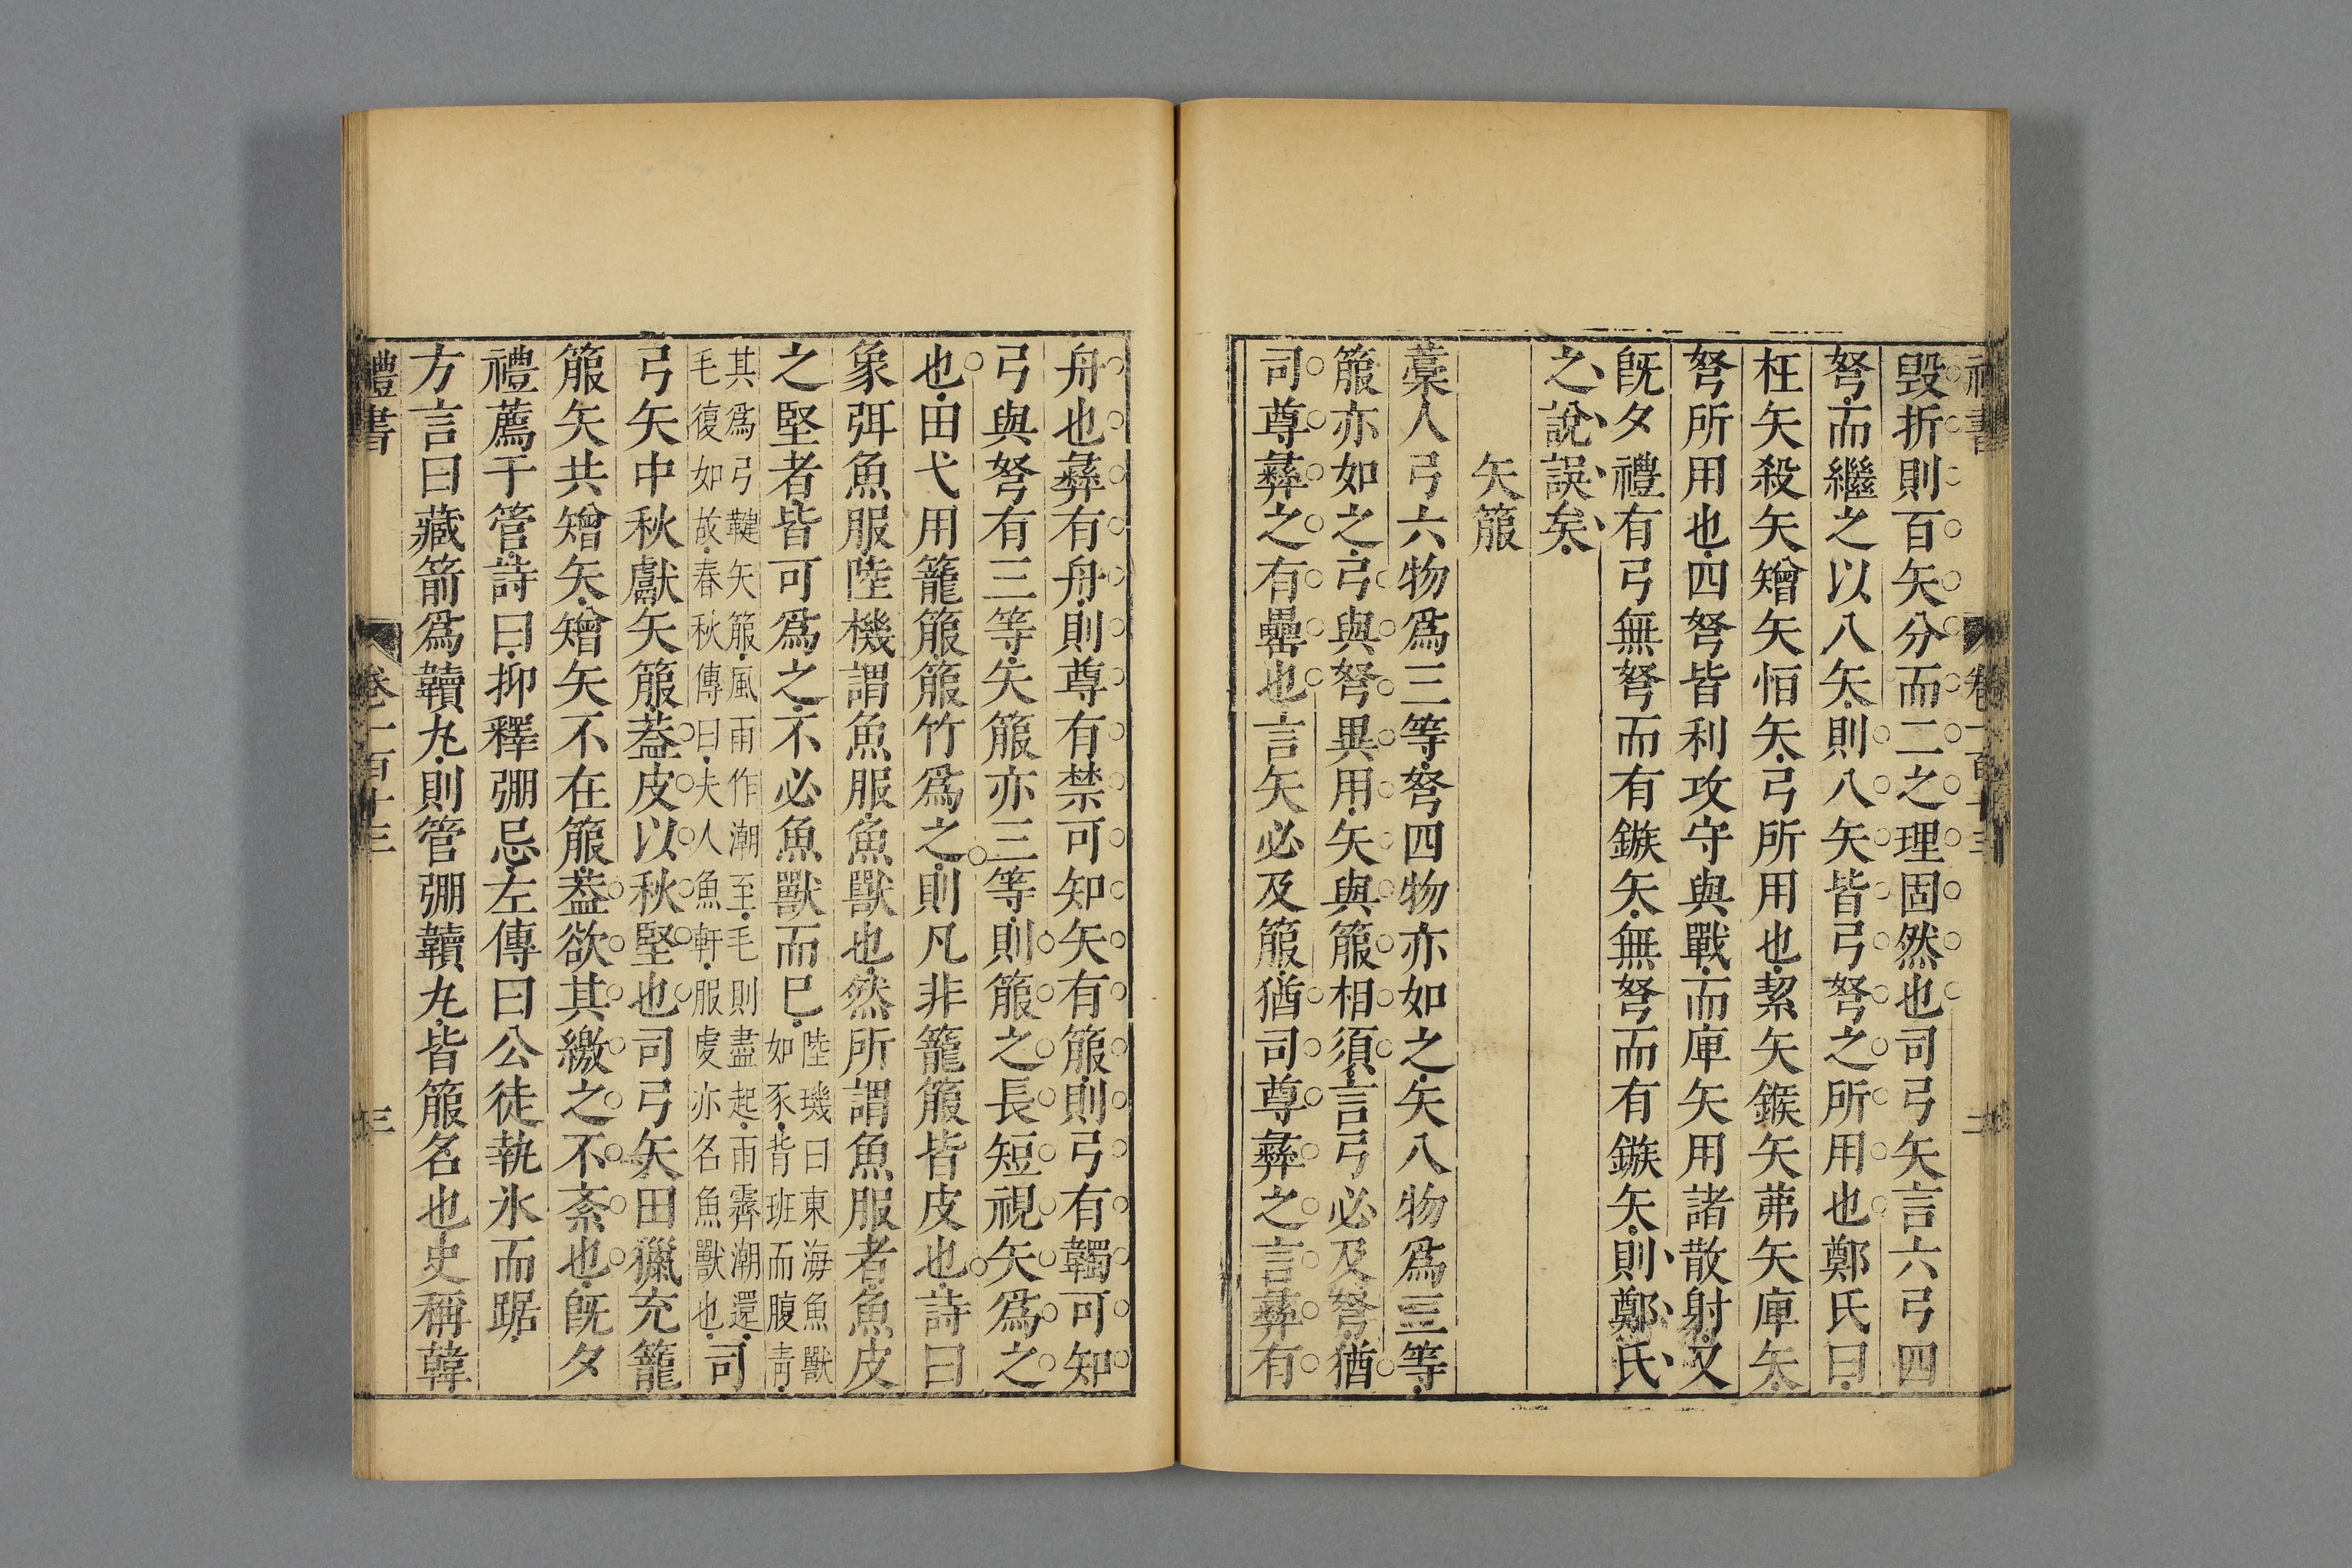 禮書
卷一百十三
二
毀折則百矢分而二之理固然也司弓矢言六弓四
弩而繼之以八矢則八矢皆弓弩之所用也鄭氏曰
枉矢殺矢矰矢恒矢弓所用也絜矢鍭矢茀矢庳矢
弩所用也四弩皆利攻守與戰而庳矢用諸散射又
旣夕禮有弓無弩而有鏃矢無弩而有鏃矢則鄭氏
之說誤矣
矢箙
藁人弓六物爲三等弩四物亦如之矢八物爲三等
箙亦如之弓與弩異用矢與箙相須言弓必及弩猶
司尊彝之有罍也言矢必及箙猶司尊彝之言彝有
舟也彝有舟則尊有禁可知矢有箙則弓有韣可知
弓與弩有三等矢箙亦三等則箙之長短視矢爲之
也田弋用籠箙箙竹爲之則凡非籠箙皆皮也詩曰
象弭魚服陸機謂魚服魚獸也然所謂魚服者魚皮
之堅者皆可爲之不必魚獸而已陸璣曰東海魚獸
如豕背班而腹青
其爲弓鞬矢箙風雨作潮至毛則盡起雨霽潮還
毛復如故春秋傳曰夫人魚軒服虔亦名魚獸也司
弓矢中秋獻矢箙葢皮以秋堅也司弓矢田獵充籠
箙矢共矰矢矰矢不在箙葢欲其繳之不紊也旣夕
禮薦干管詩曰抑釋弸忌左傳曰公徒執氷而踞
方言曰藏箭爲韇丸則管弸韇丸皆箙名也史稱韓
禮書
卷一百十三
三